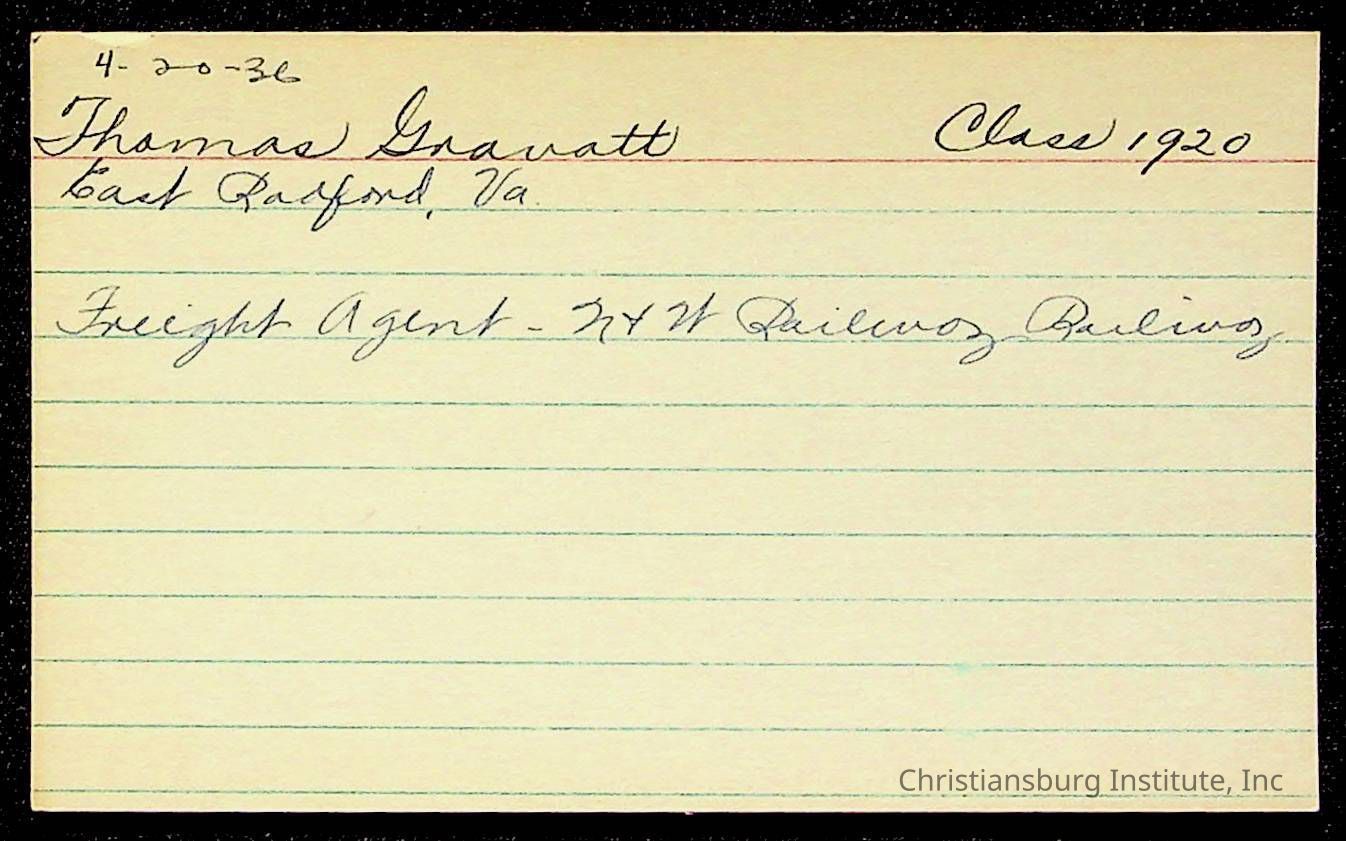 4-20-36
Thomas Gravatt Class 1920
East Radford, Va.
Freight Agent - N & W Railway Railway
Christiansburg Institute, Inc